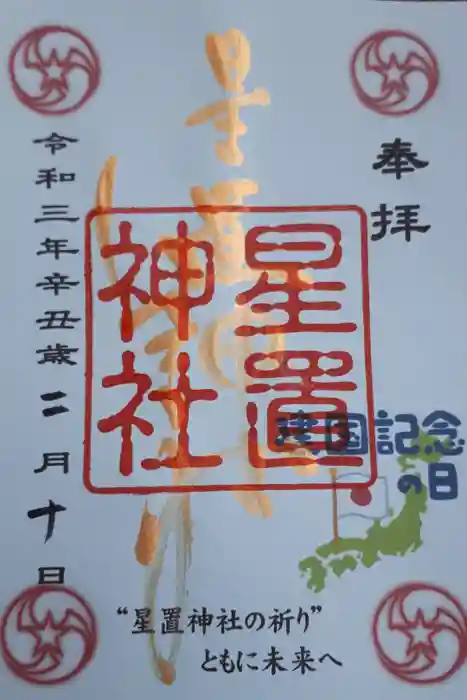 奉拝
星置神社
星置
神社
建国記念
の日
令和三年辛丑歳二月十日
“星置神社の祈り”
ともに未来へ